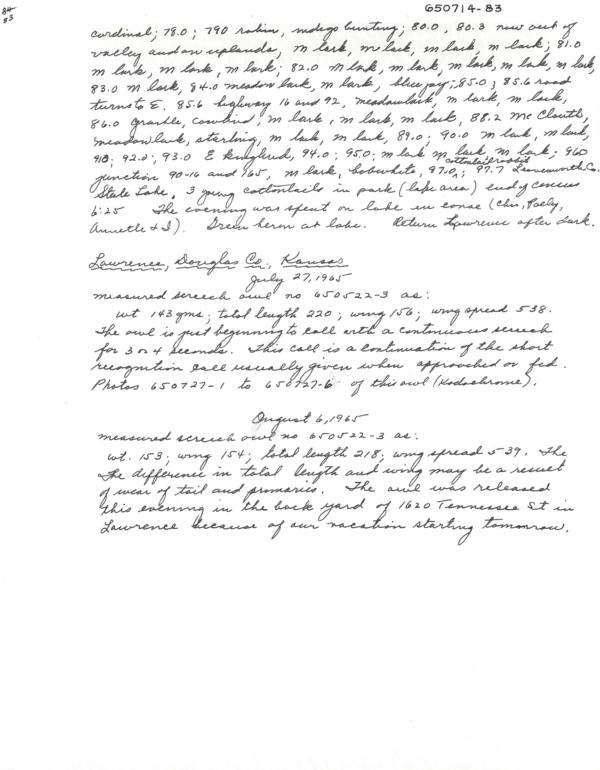 84
83
650714-83
cardinal; 78.0; 79.0 robin, indigo bunting; 80.0, 80.3 now out of
valley and on uplands, m lark, m lark, m lark, m lark; 81.0
m lark, m lark, m lark; 82.0 m lark, m lark, m lark, m lark, m lark,
83.0 m lark, 84.0 meadow lark, m lark, blue jay; 85.0; 85.6 road
turns to E. 85.6 highway 16 and 92, meadowlark, m lark, m lark,
86.0 grackle, cowbird, m lark, m lark, m lark, 88.2 McClouth,
meadowlark, starling, m lark, m lark, 89.0; 90.0 m lark, m lark,
91.0; 92.0; 93.0 E kingbird, 94.0; 95.0; m lark m lark, m lark; 96.0
cottontail rabbit
junction 90-16 and 165, m lark, bobwhite, 97.0; 97.7 Leavenworth Co.
State Lake, 3 young cottontails in park (lake area) end of census
6:25 The evening was spent on lake in canoe (Chu, Paely,
Annette & I). Green heron at lake. Return Lawrence after dark.
Lawrence, Douglas Co., Kansas
July 27, 1965
measured screech owl no 650522-3 as:
wt 143 gms; total length 220; wing 156; wing spread 538.
The owl is just beginning to call with a continuous screech
for 3 or 4 seconds. This call is a continuation of the short
recognition call usually given when approached or fed.
Photos 650727-1 to 650727-6 of this owl (Kodachrome).
August 6, 1965
measured screech owl no 650522-3 as:
wt. 153; wing 154; total length 218; wing spread 539. The
the difference in total length and wing may be a result
of wear of tail and primaries. The owl was released
this evening in the back yard of 1620 Tennessee St in
Lawrence because of our vacation starting tomorrow.